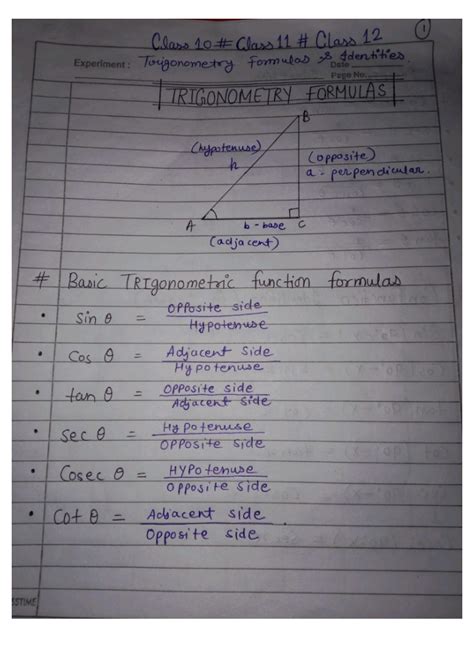 1
Class 10 # Class 11 # Class 12
Experiment : Trigonometry formulas & Identities.
Date
Page No.
TRIGONOMETRY FORMULAS
B
(hypotenuse)
h
(opposite)
a - perpendicular.
A
b - base
C
(adjacent)
# Basic TRIgonometric function formulas
• Sin θ = OPPosite side / Hypotenuse
• Cos θ = Adjacent Side / Hypotenuse
• tan θ = OPPosite side / Adjacent side
• sec θ = Hypotenuse / OPPosite side
• Cosec θ = HYPotenuse / Opposite side
• Cot θ = Adjacent side / Opposite side.
SSTIME